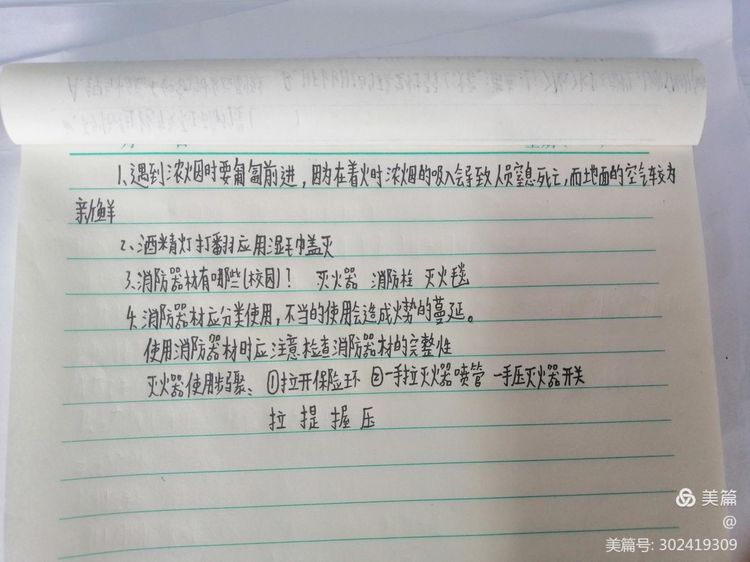 月 日 星期( )
1、遇到浓烟时要匍匐前进，因为在着火时浓烟的吸入会导致人员窒息死亡，而地面的空气较为
新鲜
2、酒精灯打翻应用湿毛巾盖灭
3、消防器材有哪些(校园)？ 灭火器 消防栓 灭火毯
4、消防器材应分类使用，不当的使用会造成火势的蔓延。
使用消防器材时应注意检查消防器材的完整性
灭火器使用步骤、①拉开保险环 ②一手拉灭火器喷管 一手压灭火器开关
拉 提 握 压
美篇
@
美篇号: 302419309